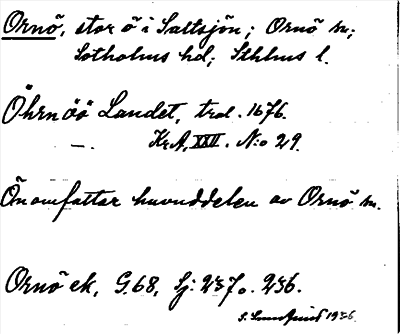 Ornö, stor ö i Saltsjön; Ornö sn;
Sotholms hd; Sthlms l.
Öhrnöö Landet, tral. 1676.
—. Kr.A. XXII. N:o 29.
Ön omfattar huvuddelen av Ornö sn.
Ornö ek, G.68, Sj: 237 o. 236.
S. 1936